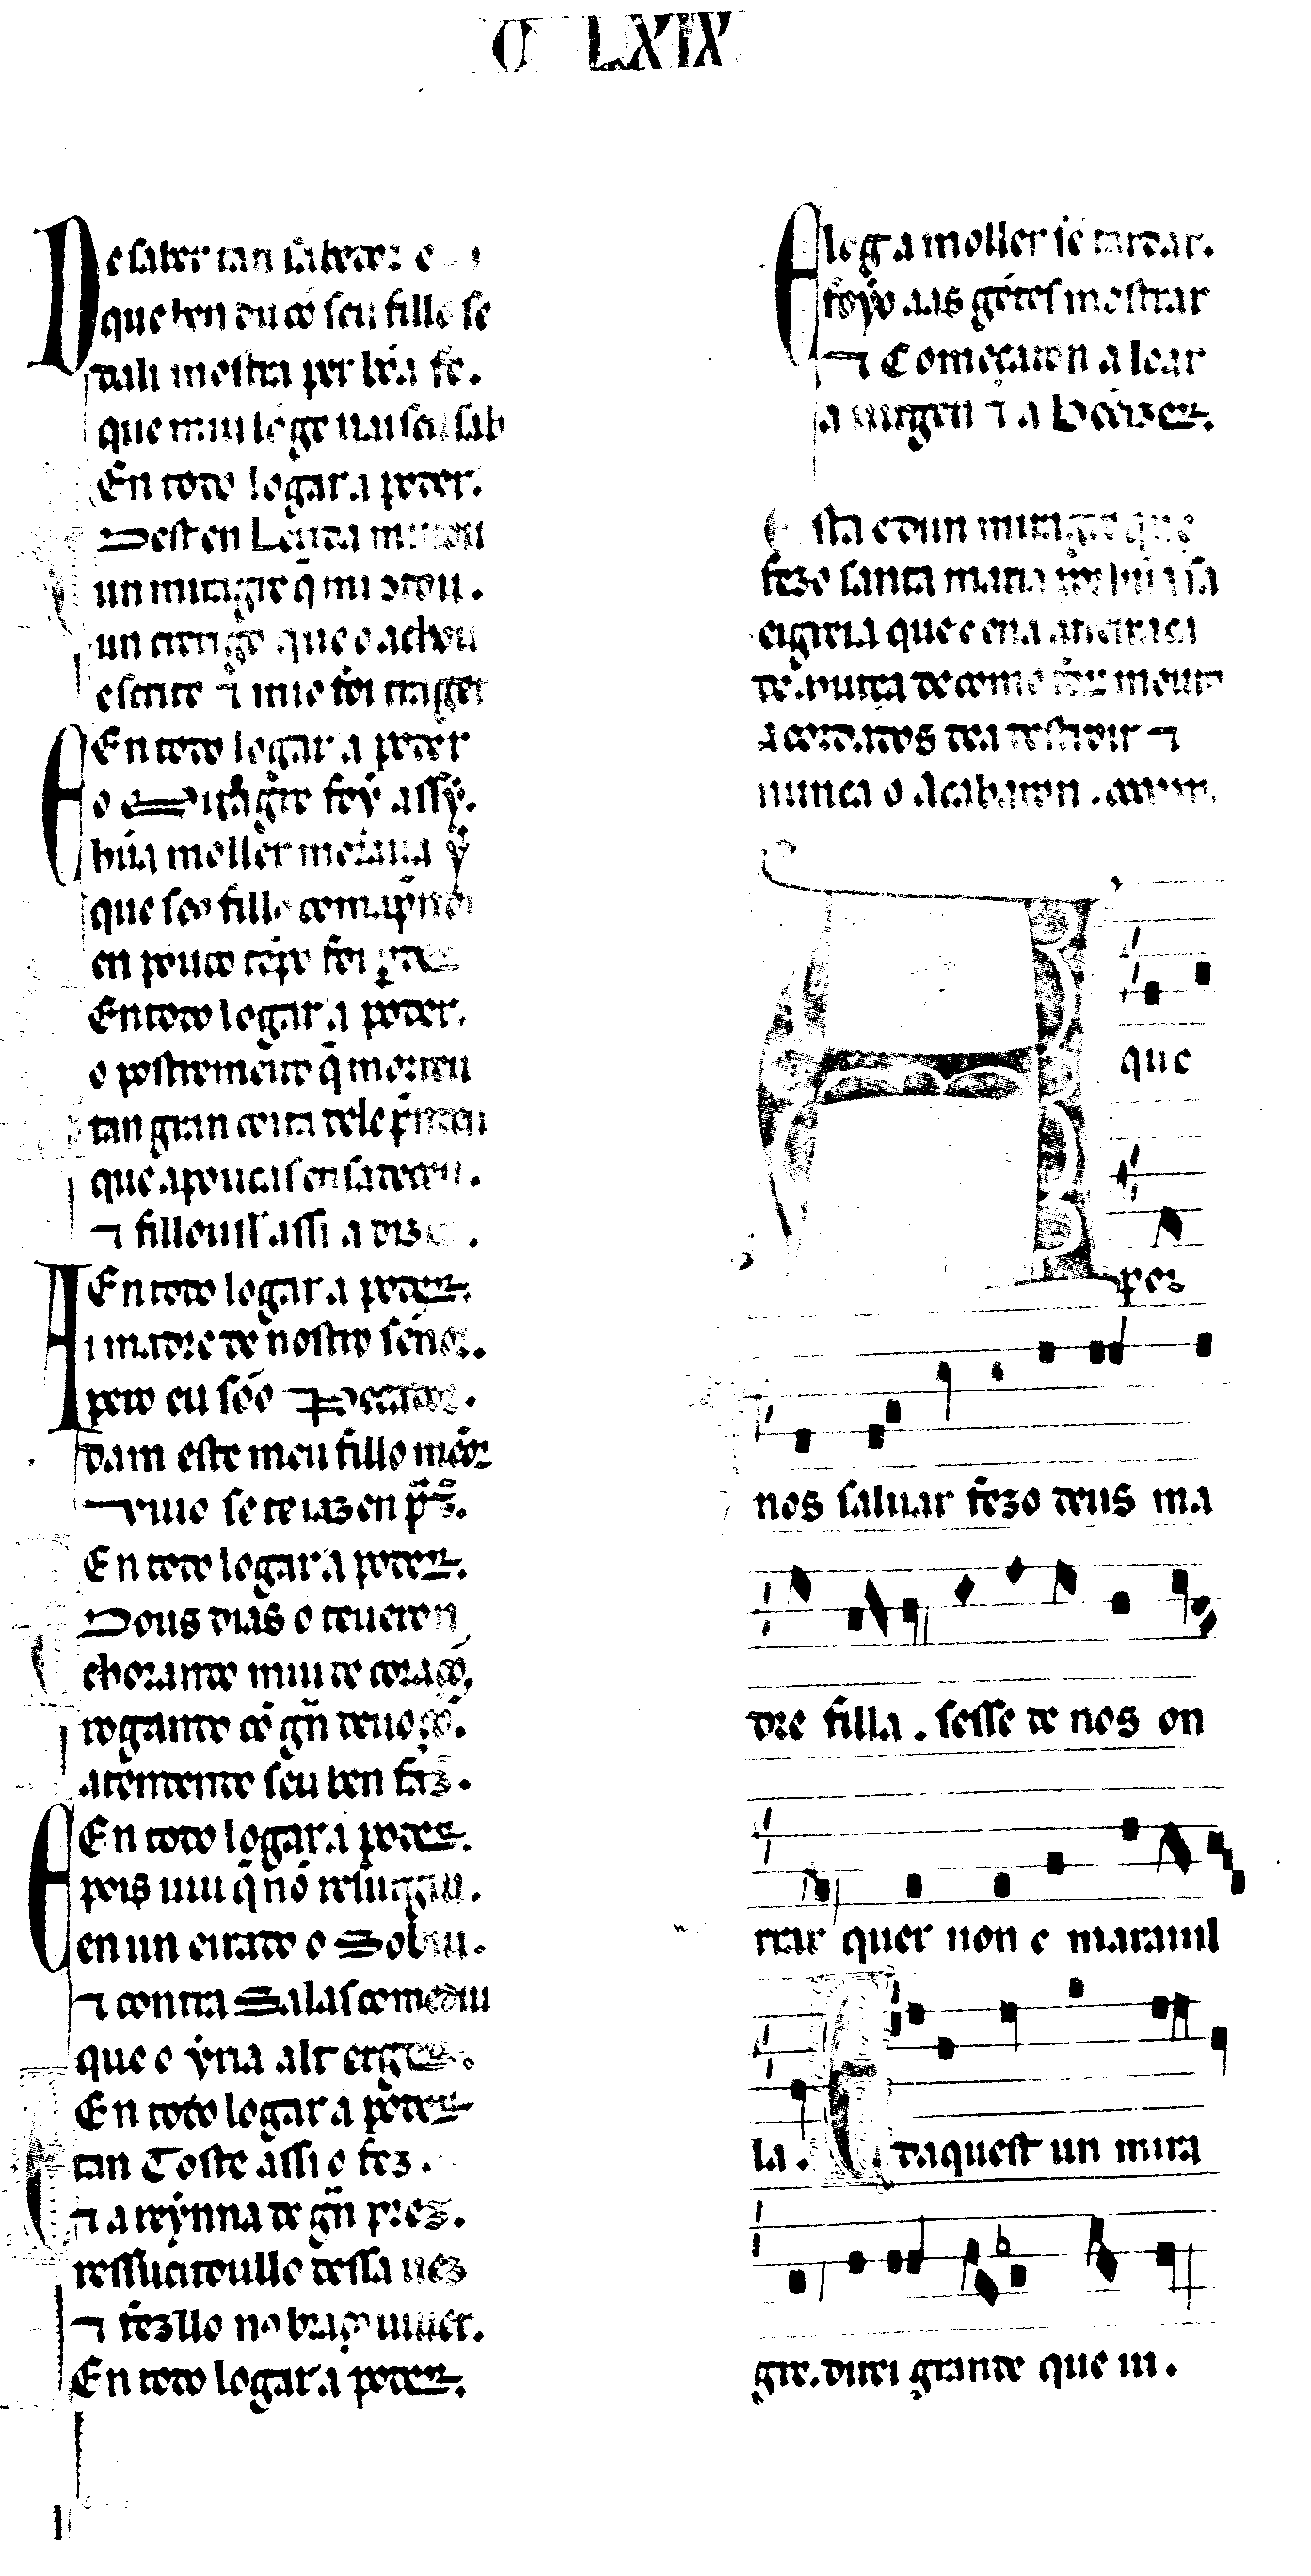 LXIX
De saber tan sabedor e
que ben du cõ seu fillo se
dali mostra per bõa fe.
que mui lõge uai seu sab
En todo logar a poder.
Dest en Lerida mostrou
un miragre q̃ mi
un crerigo que o achou
escrito ⁊ mio foi trager
En todo logar a poder
E o Miragre foy assy.
hũa moller moraua y
que seo fillo
en pouco tẽpo foi
En todo logar a poder.
o postremeiro q̃ morreu
tan gran coita dele prendeu
que a poucas ensandeceu.
⁊ fillouss assi a diz
En todo logar a poder.
Ai madre de nostro señor.
pero eu sõo Pecador.
dam este meu fillo meor
uiuo se te iaz en
En todo logar a poder.
Dous dias o teueron
chorando mui de coraçõ,
rogando cõ grñ deuoçõ.
atendendo seu ben faz.
En todo logar a poder.
E pois uiu q̃ nõ resurgiu.
en un eirado o Sobiu.
⁊ contra Salas comediu
que o yria alr erger.
En todo logar a poder
tan Toste assi o fez.
⁊ a reynna de grñ prez.
ressucitoullo dessa uez
⁊ fezllo no braço uiuer.
En todo logar a poder.
E log a moller se tardar.
foyo aas gẽtes mostrar
⁊ Começaron a loar
a uirgen ⁊ a beẽizer.
Esta e dun miragre que
fezo santa maria por hũa sa
eigreia que e ena
de murça de como foy mouro
acordados de a destroir ⁊
nunca o Acabaron.
A que
por
nos saluar fezo deus ma
dre filla. sesse de nos on
rrar quer non e marauil
la. E daquest un mira
gre. direi grande que ui.